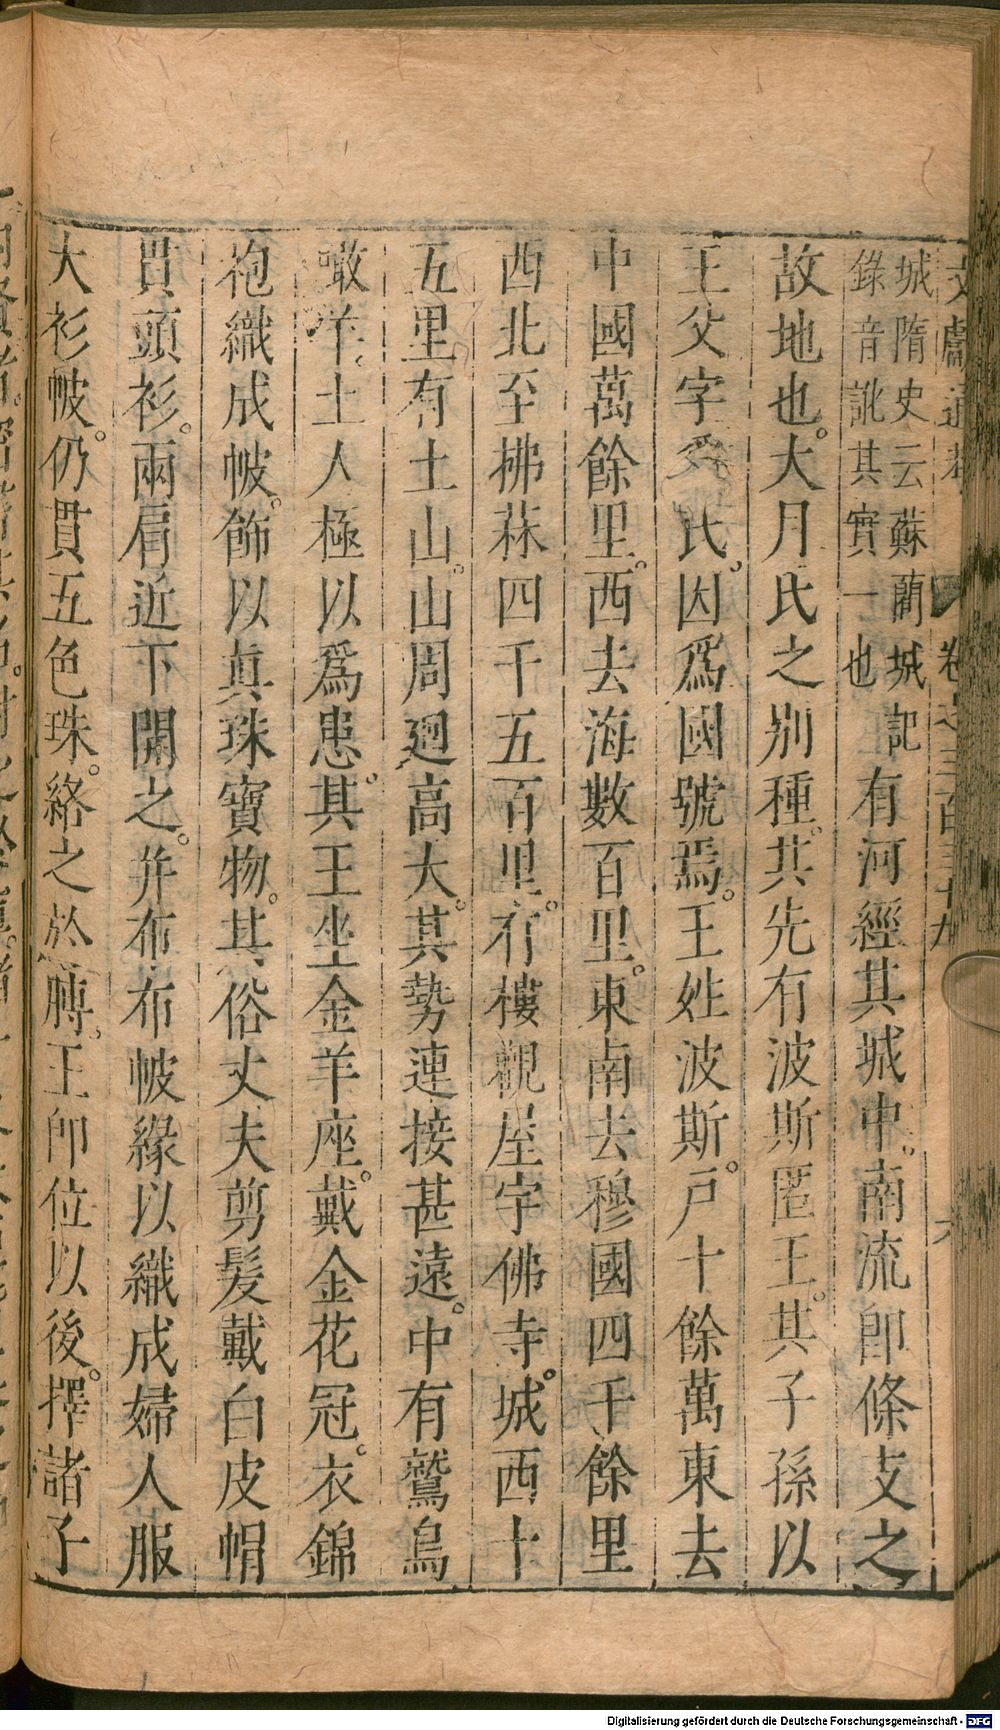 文獻通考 卷之三百三十九 六
城隋史云蘇藺城記
錄音訛其實一也
有河經其城中。南流即條支之
故地也。大月氏之别種。其先有波斯匿王。其子孫以
王父字爲氏。因爲國號焉。王姓波斯。戸十餘萬東去
中國萬餘里。西去海數百里。東南去穆國四千餘里
西北至拂菻四千五百里。有樓觀屋宇佛寺。城西十
五里。有土山。山周廻高大。其勢連接甚遠。中有鷲鳥
噉羊。土人極以爲患。其王坐金羊座。戴金花冠。衣錦
袍織成帔。飾以眞珠寶物。其俗丈夫剪髮戴白皮帽
貫頭衫。兩肩近下開之。并布布帔緣以織成婦人服
大衫帔。仍貫五色珠。絡之於膊。王即位以後。擇諸子
Digitalisierung gefördert durch die Deutsche Forschungsgemeinschaft - DFG